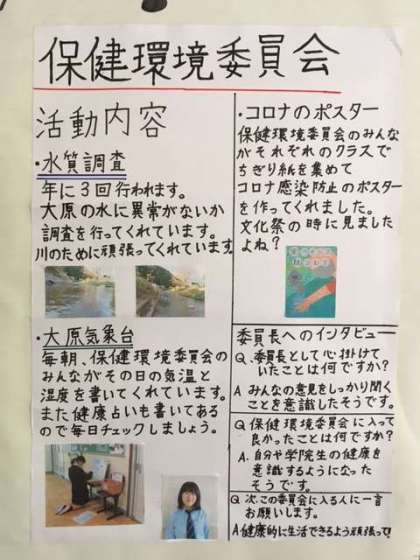 保健環境委員会
活動内容
・水質調査
年に3回行われます。
大原の水に異常がないか
調査を行ってくれています。
川のために頑張ってくれています。
・大原気象台
毎朝、保健環境委員会の
みんながその日の気温と
湿度を書いてくれています。
また健康占いも書いてある
ので毎日チェックしましょう。
・コロナのポスター
保健環境委員会のみんな
がそれぞれのクラスで
ちぎり紙を集めて
コロナ感染防止のポスター
を作ってくれました。
文化祭の時に見ました
よね?
委員長へのインタビュー
Q、委員長として心掛けて
いたことは何ですか?
A みんなの意見をしっかり聞く
ことを意識したそうです。
Q 保健環境委員会に入って
良かったことは何ですか?
A. 自分や学院生の健康を
意識するようになった
そうです。
Q 次、この委員会に入る人に一言
お願いします。
A 健康的に生活できるよう頑張って!